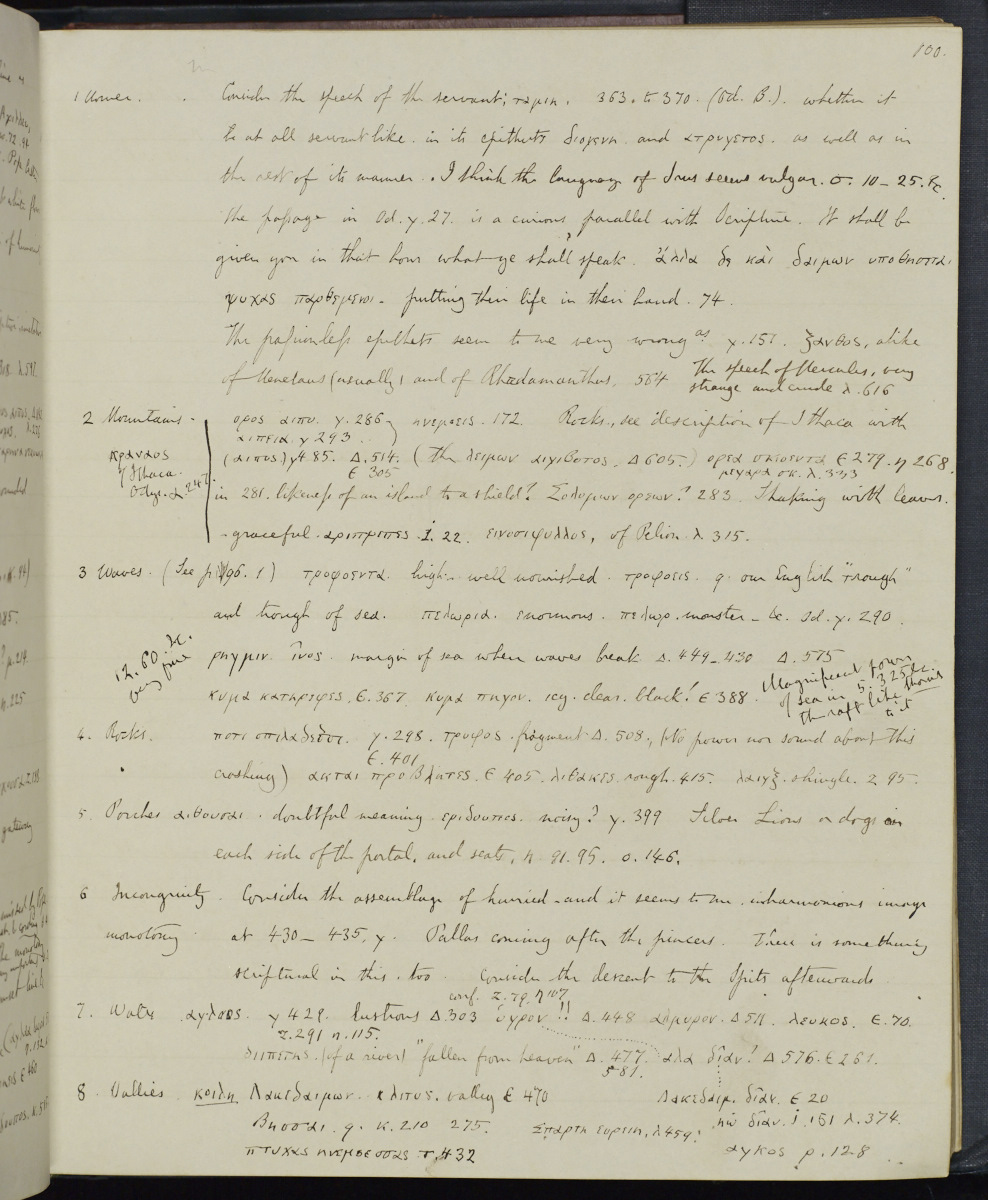 100.
1 Homer. Consider the speech of the servant; ταμιη. 363. to 370. (Od. B.). whether it
be at all servantlike. in its epithets διογενη and ατρυγετος. as well as in
the rest of its manner. I think the language of Irus seems vulgar. σ. 10-25. &c.
the passage in Od. γ. 27. is a curious parallel with Scripture. It shall be
given you in that hour what ye shall speak. ἄλλα δε και δαιμων υποθησεται
ψυχας παρθεμενοι - putting their life in their hand. 74.
The passionless epithets seem to me very wrong as γ. 151. ξανθος, alike
of Menelaus (usually) and of Rhadamanthus, 564 The speech of Hercules, very
strange and crude λ. 616
2 Mountains - ορος αιπυ. γ. 286 ηνεμοεις. 172. Rocks, see description of Ithaca with
αιπεια γ 293
κραναος of Ithaca. Odys. α 247.
(αιπος) γ 485. Δ. 514. (the λειμων αιγιβοτος. Δ 605.) ορεα σκιοεντα Ε 279. η 268.
Ε 305 μεγαρα σκ. λ. 333
in 281. likeness of an island to a shield? Σολυμων ορεων? 283. Shaking with leaves.
- graceful αριπρεπες. i. 22. εινοσιφυλλος, of Pelion λ 315.
3 Waves. (See p 96. 1) τροφοεντα. high - well nourished. τροφεις. q. our English "trough"
and trough of sea. πελωρια. enormous. πελωρ. monster - &c. Od. γ. 290.
12. 60 &c. very fine
ρηγμιν. ῖνος. margin of sea when waves break Δ. 449-430 Δ. 575
κυμα κατηρεφες. Ε. 367. κυμα πηγον. icy. clear. black! Ε 388. Magnificent power
of sea in 5. 325 &c.
the raft like thorns
to it
4. Rocks. ποτι σπιλαδεσσι. γ. 298. τρυφος. fragment Δ. 508., (No power nor sound about this
Ε. 401
crashing) ακται προβλητες. Ε 405. λιθακες. rough. 415. λαιγξ. shingle. Ζ 95.
5. Porches αιθουσαι. doubtful meaning. εριδουπος. noisy? γ. 399 Silver Lions or dogs on
each side of the portal, and seats, η 91. 95. ο. 146.
6 Incongruity. Consider the assemblage of hurried - and it seems to me inharmonious image
monotony at 430-435. γ. Pallas coming after the pincers. There is something
scriptural in this. too. Consider the descent to the spits afterwards
conf. Ζ. 79. η 107
7. Water αγλαος. γ 429. lustrous Δ. 303 ὑγρον!! Δ. 448 αλμυρον. Δ 511. λευκος. Ε. 70.
Ζ. 291 η. 115.
διιπετης. (of a river) "fallen from heaven" Δ. 477. αλα δῖαν? Δ 576. Ε 261.
581.
8 Vallies κοιλη Λακεδαιμων. κλιτυς. valley Ε 470 Λακεδαιμ. δῖαν. Ε 20
Βησσαι. q. κ. 210 275. Σπαρτη ευρειη, λ 459. ηω δῖαν. i. 151 λ. 374.
πτυχας ηνεμοεσσας τ. 432 αγκος ρ. 128